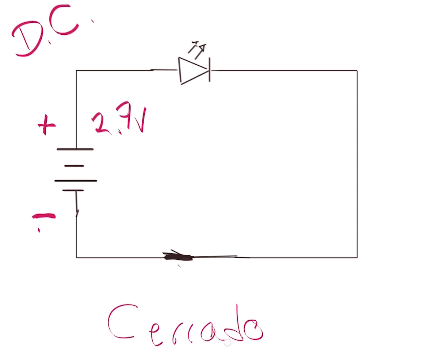 D.C.
+ 2.7V
-
Cerrado